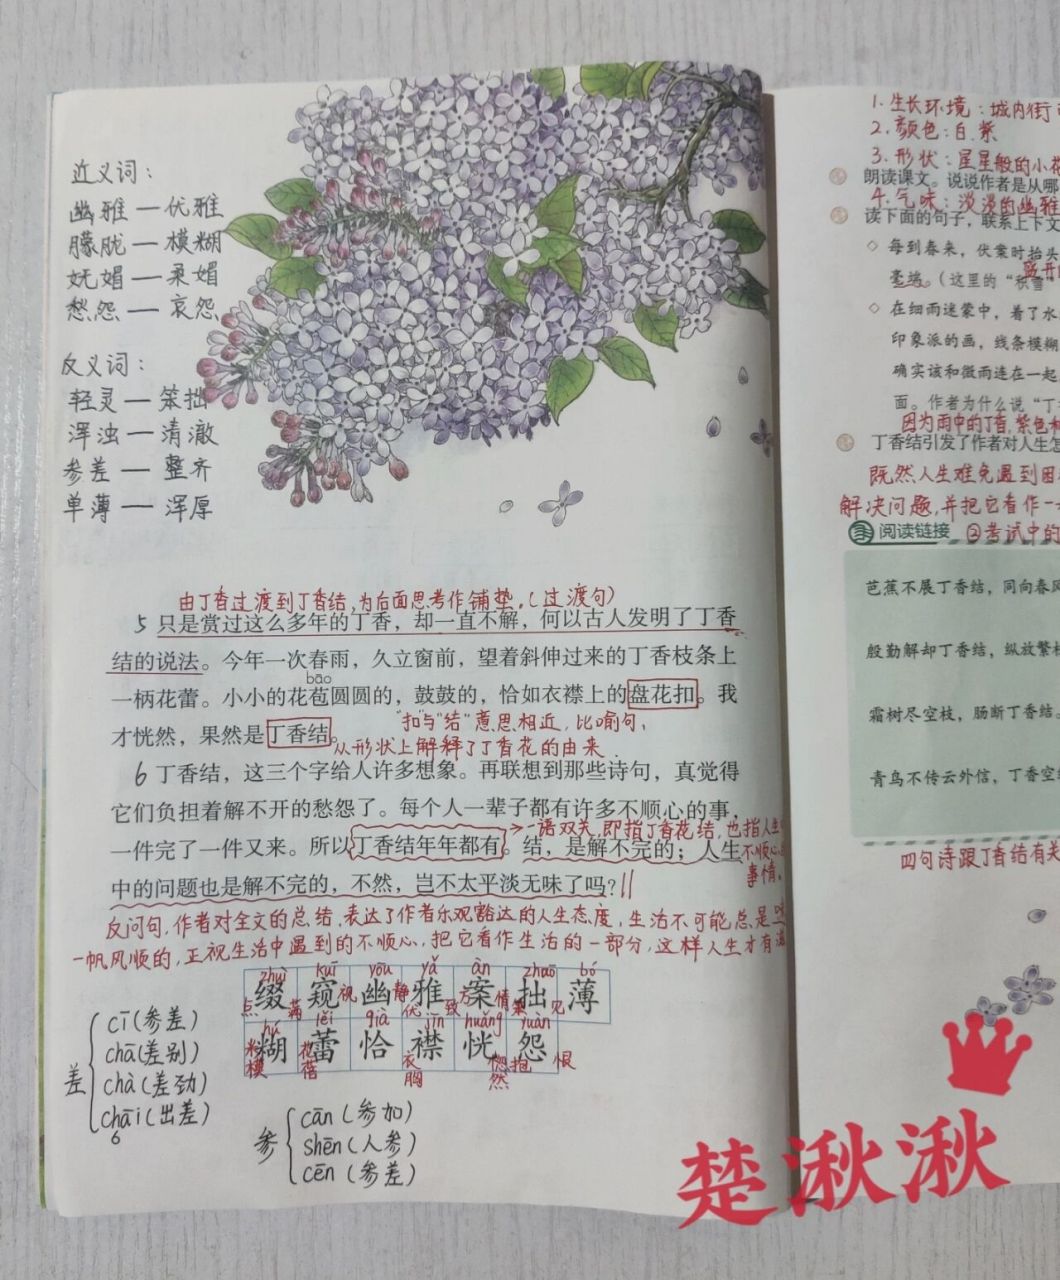 近义词：
幽雅—优雅
朦胧—模糊
妩媚—柔媚
愁怨—哀怨
反义词：
轻灵—笨拙
浑浊—清澈
参差—整齐
单薄—浑厚
由丁香过渡到丁香结，为后面思考作铺垫。（过渡句）
5 只是赏过这么多年的丁香，却一直不解，何以古人发明了丁香
结的说法。今年一次春雨，久立窗前，望着斜伸过来的丁香枝条上
bāo
一柄花蕾。小小的花苞圆圆的，鼓鼓的，恰如衣襟上的盘花扣。我
"扣"与"结"意思相近，比喻句，
才恍然，果然是丁香结。
从形状上解释了丁香花的由来．
6 丁香结，这三个字给人许多想象。再联想到那些诗句，真觉得
它们负担着解不开的愁怨了。每个人一辈子都有许多不顺心的事，
一语双关，即指丁香花结，也指人生
一件完了一件又来。所以丁香结年年都有。结，是解不完的；人生
不顺心
事情。
中的问题也是解不完的，不然，岂不太平淡无味了吗？
反问句，作者对全文的总结，表达了作者乐观豁达的人生态度，生活不可能总是
一帆风顺的，正视生活中遇到的不顺心，把它看作生活的一部分，这样人生才有
zhuì kuī yōu yǎ àn zhuō bó
缀 窥 幽 雅 案 拙 薄
点 满 视 静 优 致 方 情 笨 见
hú lěi qià jīn huǎng yuàn
糊 蕾 恰 襟 恍 怨
模 花蕾 衣胸 然 抱 恨
差
cī（参差）
chā（差别）
chà（差劲）
chāi（出差）
6
参
cān（参加）
shēn（人参）
cēn（参差）
1．生长环境：城内街
2．颜色：白．紫
3．形状：星星般的小花
朗读课文。说说作者是从哪
4．气味：淡淡的幽雅
读下面的句子，联系上下文
◇ 每到春来，伏案时抬头
盛开
毫端。（这里的"积雪"
◇ 在细雨迷蒙中，着了水
印象派的画，线条模糊
确实该和微雨连在一起
面。作者为什么说"丁
因为雨中的丁香，紫色
丁香结引发了作者对人生怎
既然人生难免遇到困
解决问题，并把它看作一
阅读链接
②考试中的
芭蕉不展丁香结，同向春风
殷勤解却丁香结，纵放繁枝
霜树尽空枝，肠断丁香结。
青鸟不传云外信，丁香空结
四句诗跟丁香结有关
楚湫湫